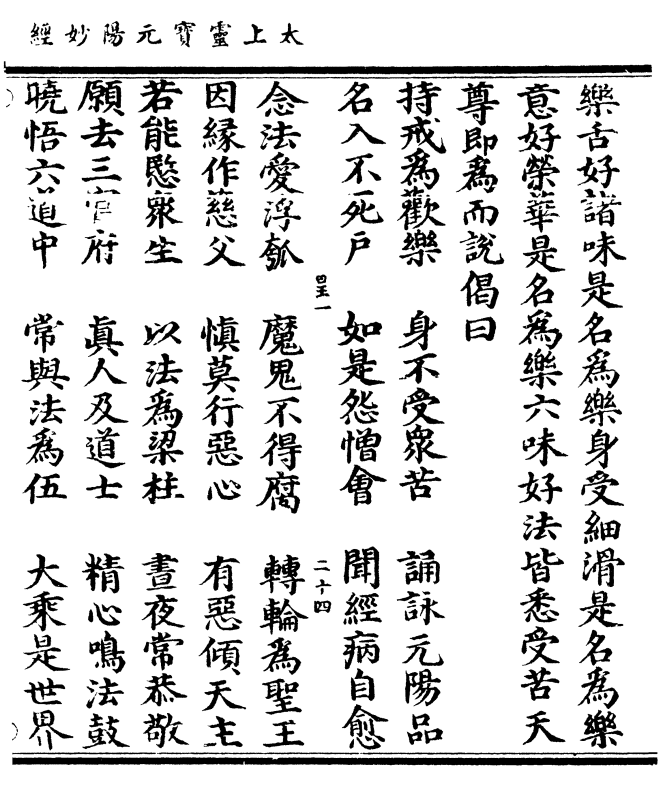 太上靈寶元陽妙經
樂舌好諸味是名爲樂身受細滑是名爲樂
意好榮華是名爲樂六味好法皆悉受苦天
尊即爲而說偈曰
持戒爲歡樂　身不受衆苦　誦詠元陽品
名入不死戶　如是怨憎會　聞經病自愈
四五一　二十四
念法愛浮瓠　魔鬼不得腐　轉輪爲聖王
因緣作慈父　愼莫行惡心　有惡傾天主
若能愍衆生　以法爲梁柱　晝夜常恭敬
願去三官府　眞人及道士　精心鳴法鼓
曉悟六道中　常與法爲伍　大乘是世界